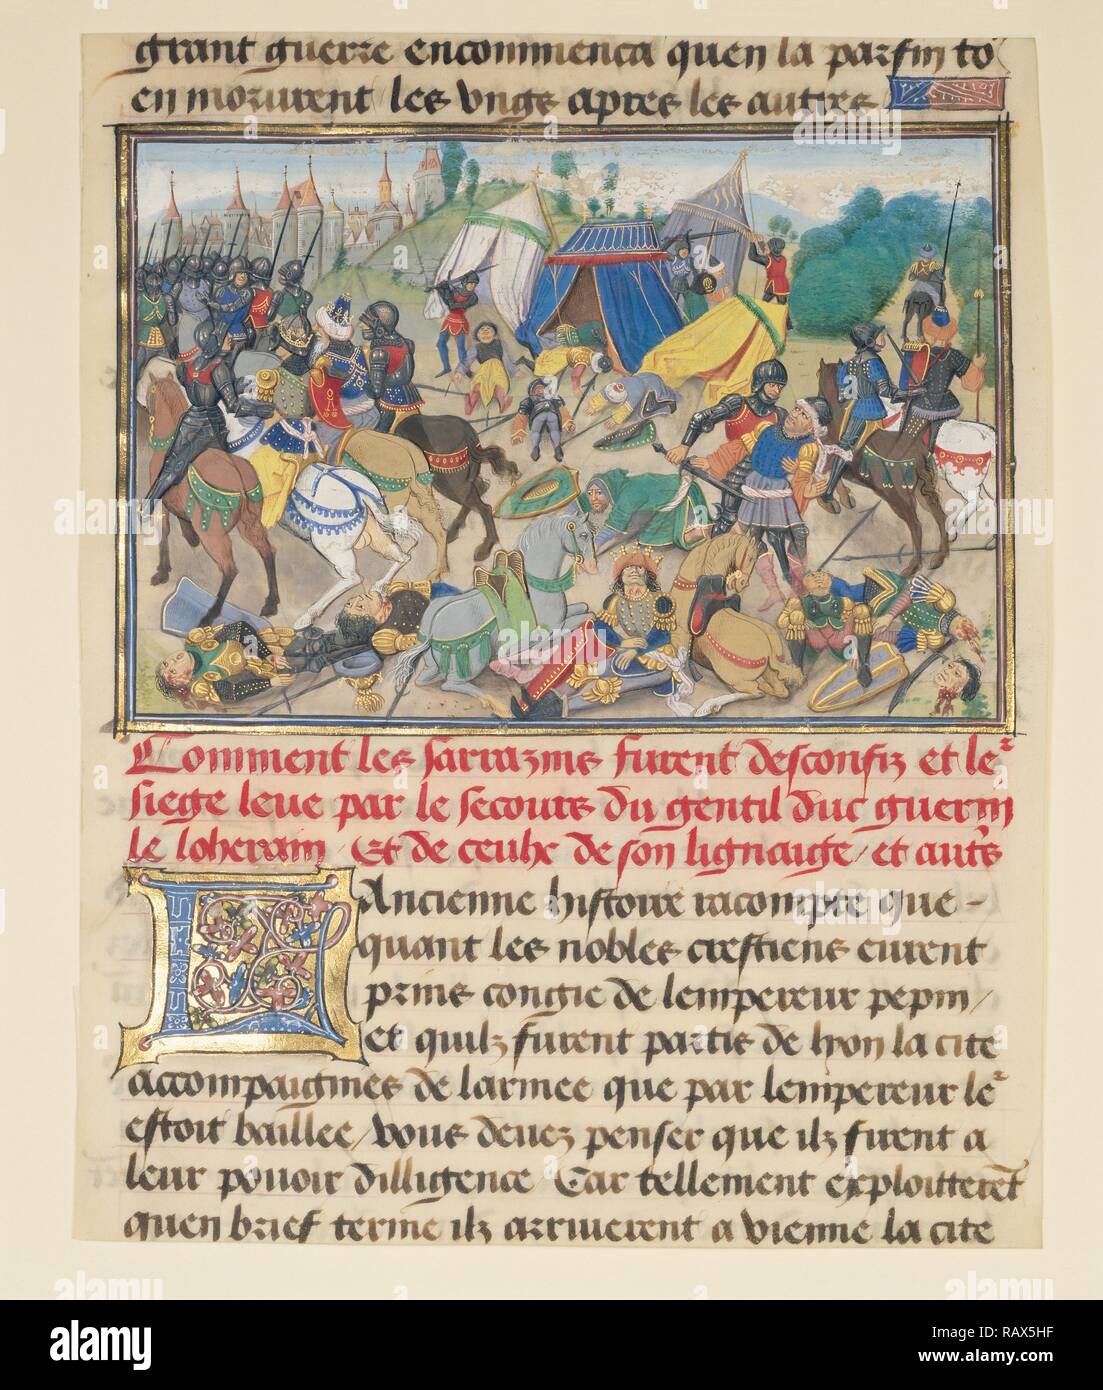 grant guerre encommenca quen la parfin to
en morurent les ungs apres les autres
Comment les sarrazins furent desconfiz et le
siege leue par le secours du gentil duc guerin
le loherain / Et de ceulx de son lignaige / et autrs
LAncienne histoire racompte que -
quant les nobles crestiens eurent
prins congie de lempereur pepin /
et quilz furent partis de lyon la cite
accompaignies de larmee que par lempereur le
estoit baillee / vous deuez penser que ilz furent a
leur pouoir dilligence Car tellement exploitterent
quen brief terme ilz arriuerent a vienne la cite
alamy
Image ID: RAX5HF
www.alamy.com